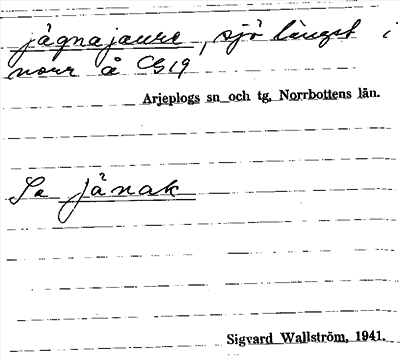 jågnajaure, sjö längst i
norr å CG19
Arjeplogs sn och tg, Norrbottens län.
Se jånak
Sigvard Wallström, 1941.